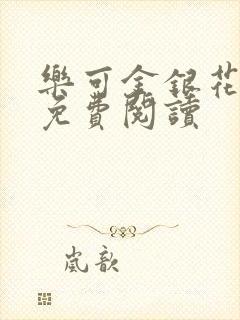 樂可金銀花
免費閱讀
嵐歆